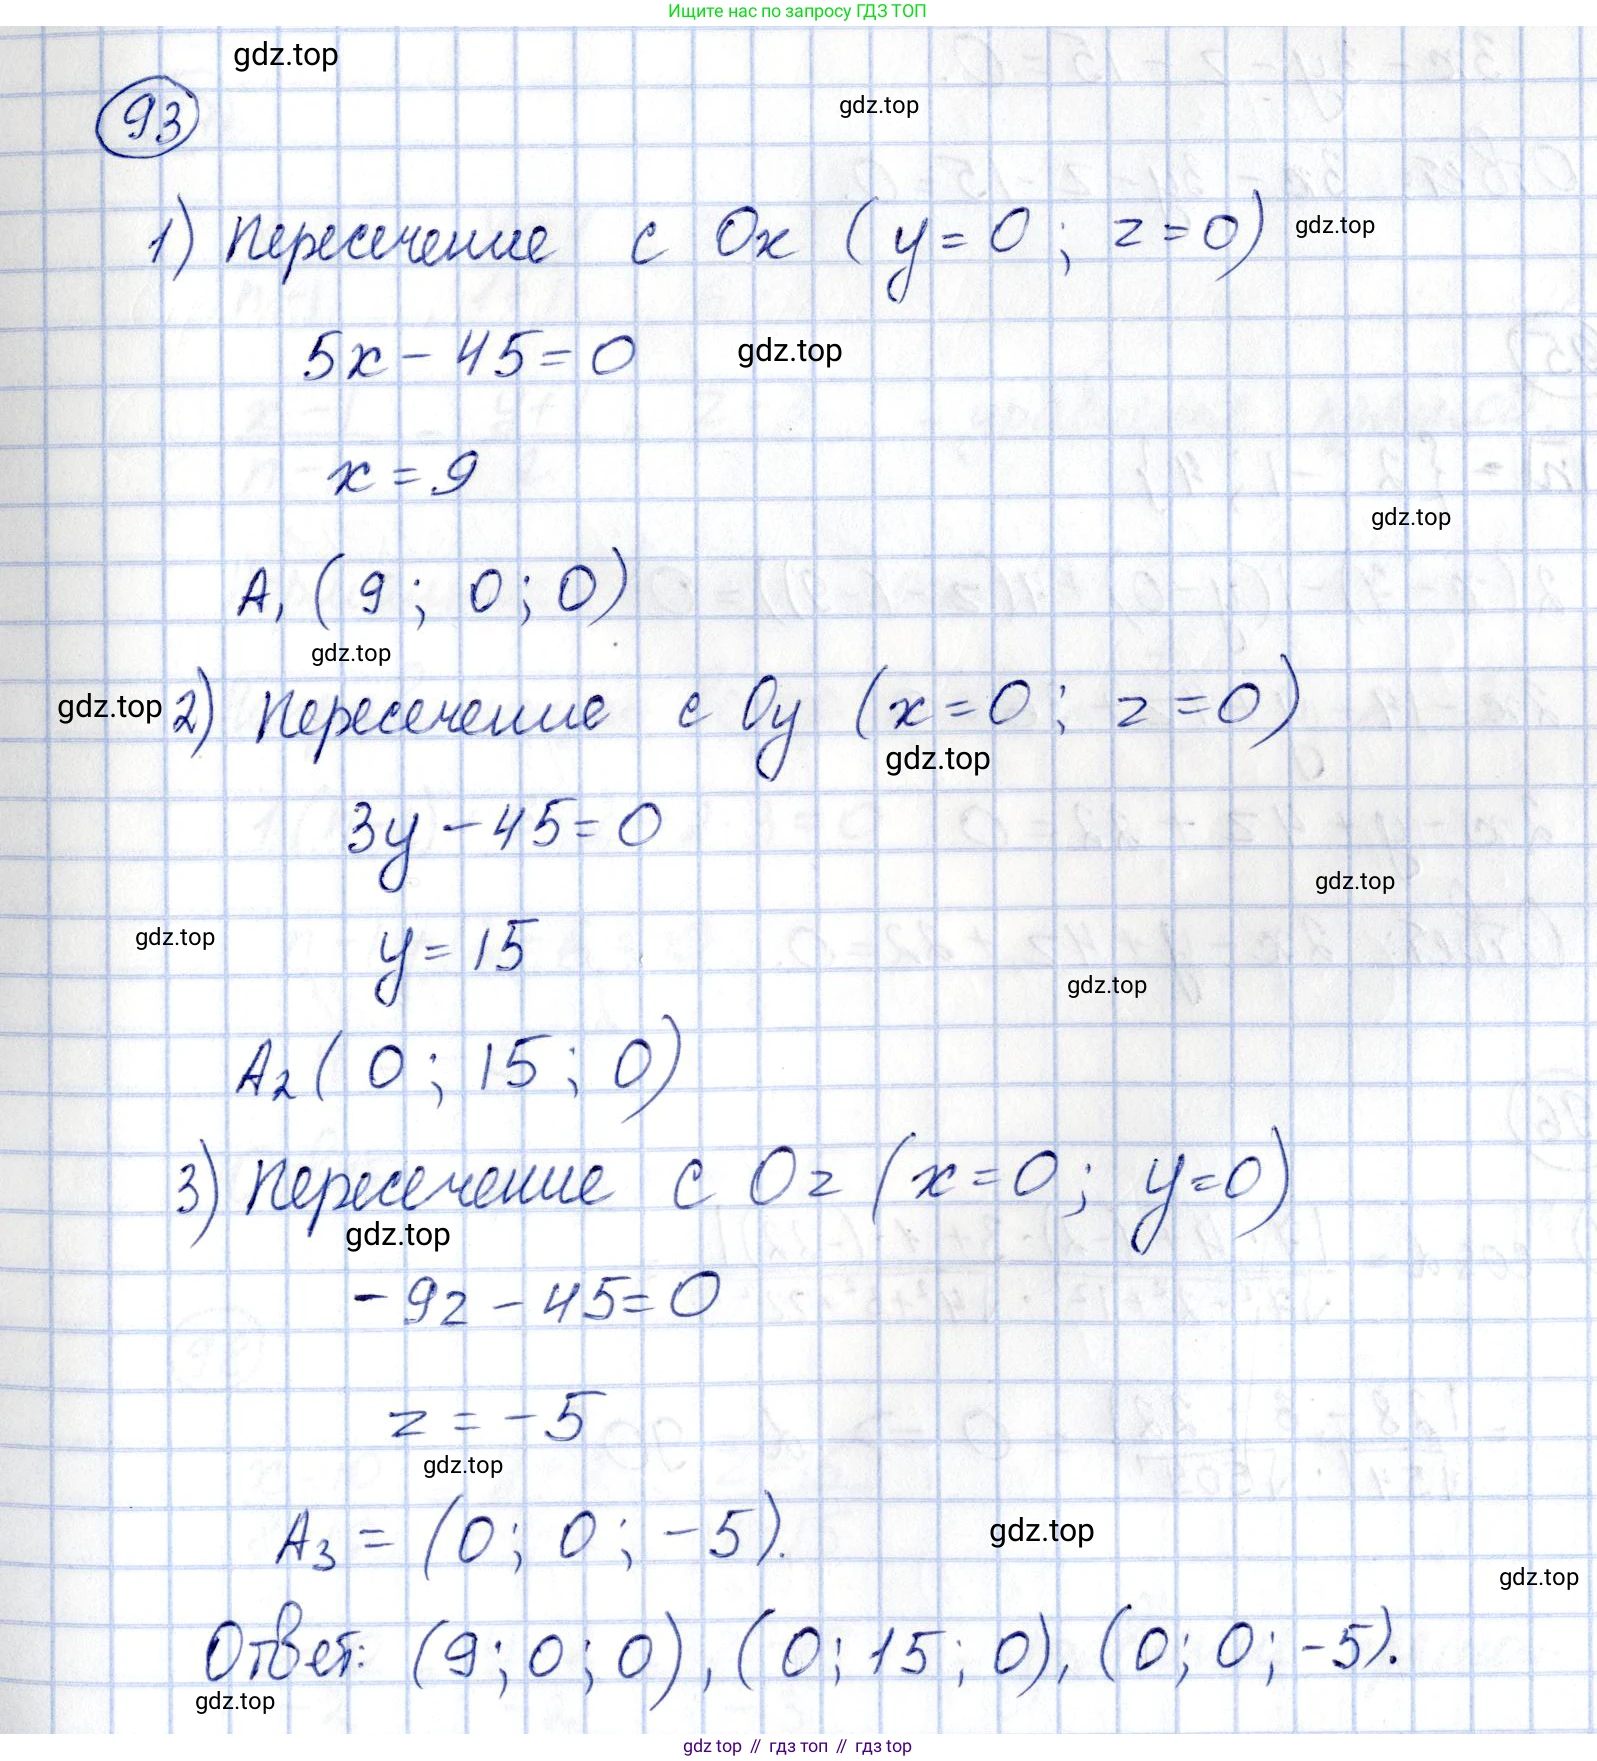 Ищите нас по запросу ГДЗ ТОП
gdz.top
93
gdz.top
1) Пересечение с Ox (y=0; z=0)
gdz.top
5x - 45 = 0
gdz.top
x = 9
gdz.top
A₁ (9; 0; 0)
gdz.top
gdz.top
2) Пересечение с Oy (x=0; z=0)
gdz.top
3y - 45 = 0
gdz.top
gdz.top
y = 15
gdz.top
A₂ (0; 15; 0)
3) Пересечение с Oz (x=0; y=0)
gdz.top
-9z - 45 = 0
z = -5
gdz.top
A₃ = (0; 0; -5).
gdz.top
gdz.top
Ответ: (9; 0; 0), (0; 15; 0), (0; 0; -5).
gdz.top
gdz top // гдз топ // gdz top